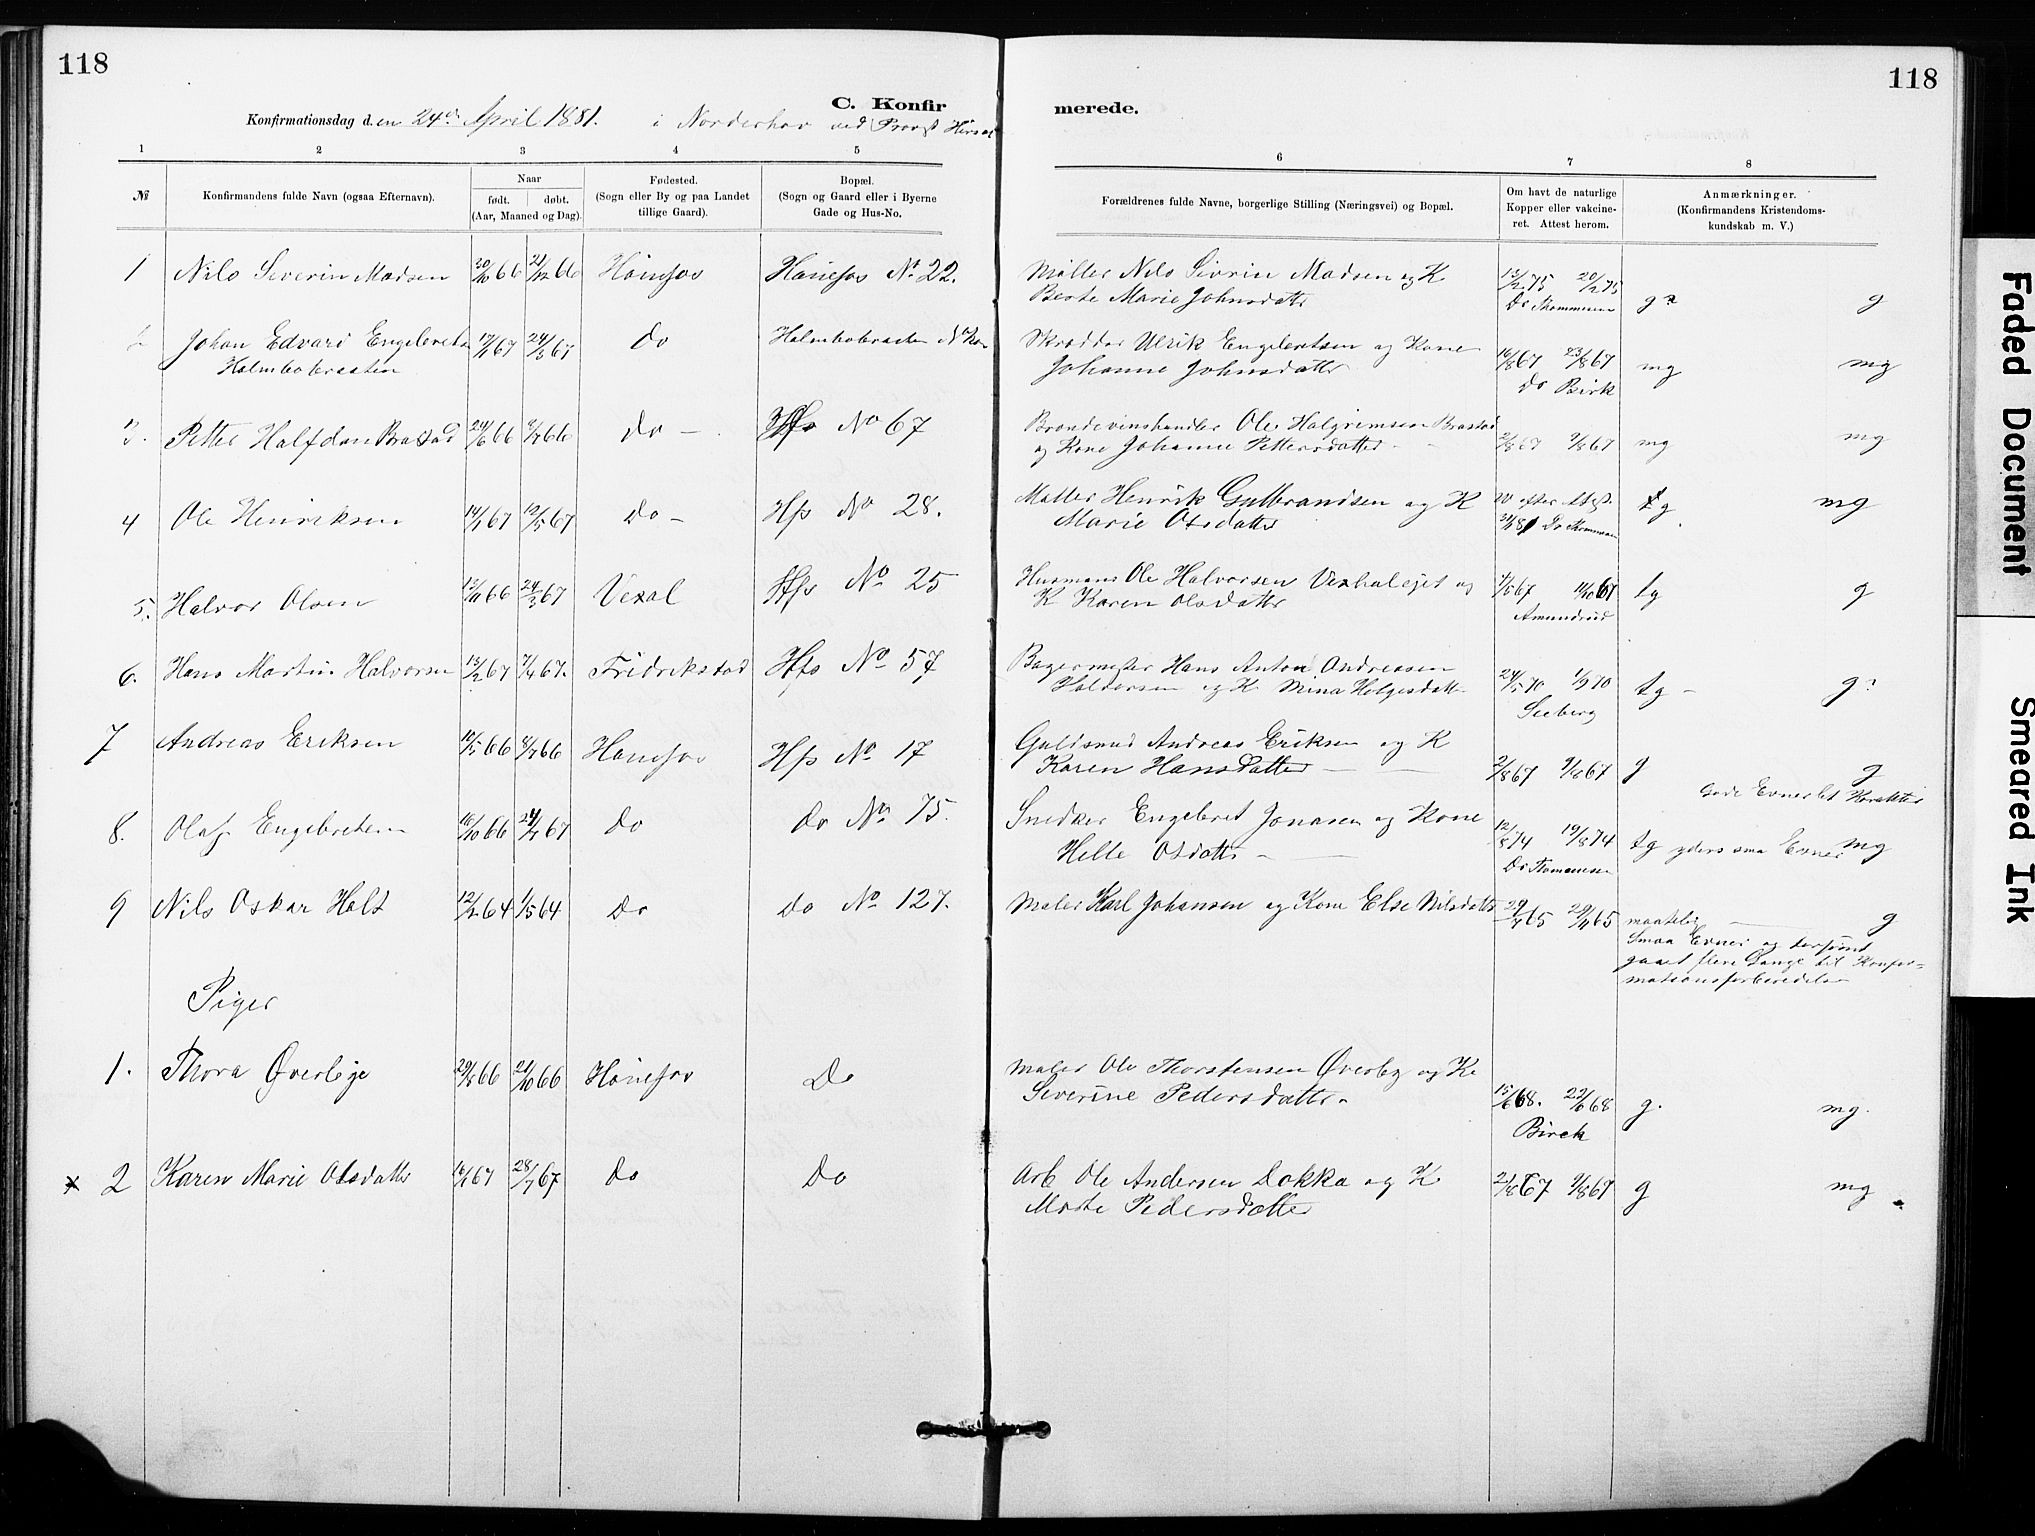 118
118
C. Konfir
merede.
Konfirmationsdag den 24de April 1881. i Norderhov ved Provst
1 2 3 4 5
6 7 8
№
Konfirmandens fulde Navn (ogsaa Efternavn).
Naar
født. døbt.
(Aar, Maaned og Dag).
Fødested.
(Sogn eller By og paa Landet
tillige Gaard).
Bopæl.
(Sogn og Gaard eller i Byerne
Gade og Hus-No.
Forældrenes fulde Navne, borgerlige Stilling (Næringsvei) og Bopæl.
Om havt de naturlige
Kopper eller vakcine-
ret. Attest herom.
Anmærkninger.
(Konfirmandens Kristendoms-
kundskab m. V.)
1 Nils Severin Madsen 20/10 66 21/12 66 Hönefos Hönefos No 22. Möller Nils Sivrin Madsen og K 13/2 75 20/2 75
Berte Marie Johnsdatter Dr Thommesen g? g
2 Johan Edvard Engebretsen 17/1 67 24/3 67 Do Halmbobraaten Skrædder Ulrik Engebretsen og Kone 16/8 67 23/8 67
Halmbobraaten Johanne Johnsdatter Dr Birk mg mg
3. Petter Halfdan Brastad 24/6 66 8/7 66 Do - Hfs No 67 Brændevinshandler Ole Halgrimsen Brastad 2/8 67 9/8 67 mg mg
og Kone Johanne Pettersdatter -
4 Ole Henriksen 14/1 67 12/5 67 Do - Hfs No 28. Möller Henrik Gulbrandsen og K efter Attest
Marie Olsdatter Dr Thommesen tg mg
5. Halvor Olsen 12/11 66 24/3 67 Vexal Hfs No 25 Husmand Ole Halvorsen Vexhalejet og
K Karen Olsdatter Amundrud tg g
6. Hans Martin Halvorsen 13/2 67 7/4 67. Fridrikstad Hfs No 57 Bagermester Hans Anton Andreasen 24/5 70 1/9 70
Haldorsen og K Mina Holgesdatter Seeberg tg - g?
7 Andreas Eriksen 10/5 66 8/7 66 Hönefos Hfs No 17 Guldsmed Andreas Eriksen og K
Karen Hansdatter - 2/8 67 9/8 67 g g
Gode Evner let Karakter
8. Olaf Engebretsen 16/10 66 24/4 67 Do Do No 75. Snedker Engebret Jonasen og Kone 12/8 74 19/8 74 tg yders smaa Evner mg
Helle Olsdatter - Dr Thommesen
9 Nils Oskar Holt 12/2 64 1/5 64 Do Do No 127. Maler Karl Johansen og Kone Else Nilsdatter 65 65 maadelig g
Smaa Evner og derfor
gaaet flere Gange til Konfir-
mationsforberedelse
Piger
1. Thora Øverbye 29/8 66 21/10 66 Hönefos Do Maler Ole Thorstensen Øverby og K.
Severine Pedersdatter. 15/6 68. 22/6 68 g. mg.
Birck
x 2 Karen Marie Olsdatter 16/1 67 28/7 67 Do Do Arb Ole Andersen Dokka og K 2/8 67 9/8 67 g mg
Marte Pedersdatter
Faded Document
Smeared Ink